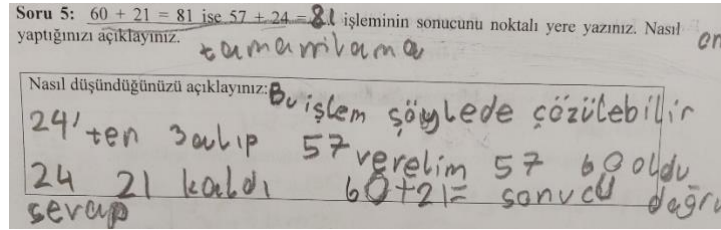 Soru 5: 60 + 21 = 81 ise 57 + 24 = 81 işleminin sonucunu noktalı yere yazınız. Nasıl
yaptığınızı açıklayınız. tamamlama
Nasıl düşündüğünüzü açıklayınız: Bu işlem şöylede çözülebilir
24'ten 3 alıp 57 verelim 57 60 oldu
24 21 kaldı 60+21= sonucu doğru
sevap